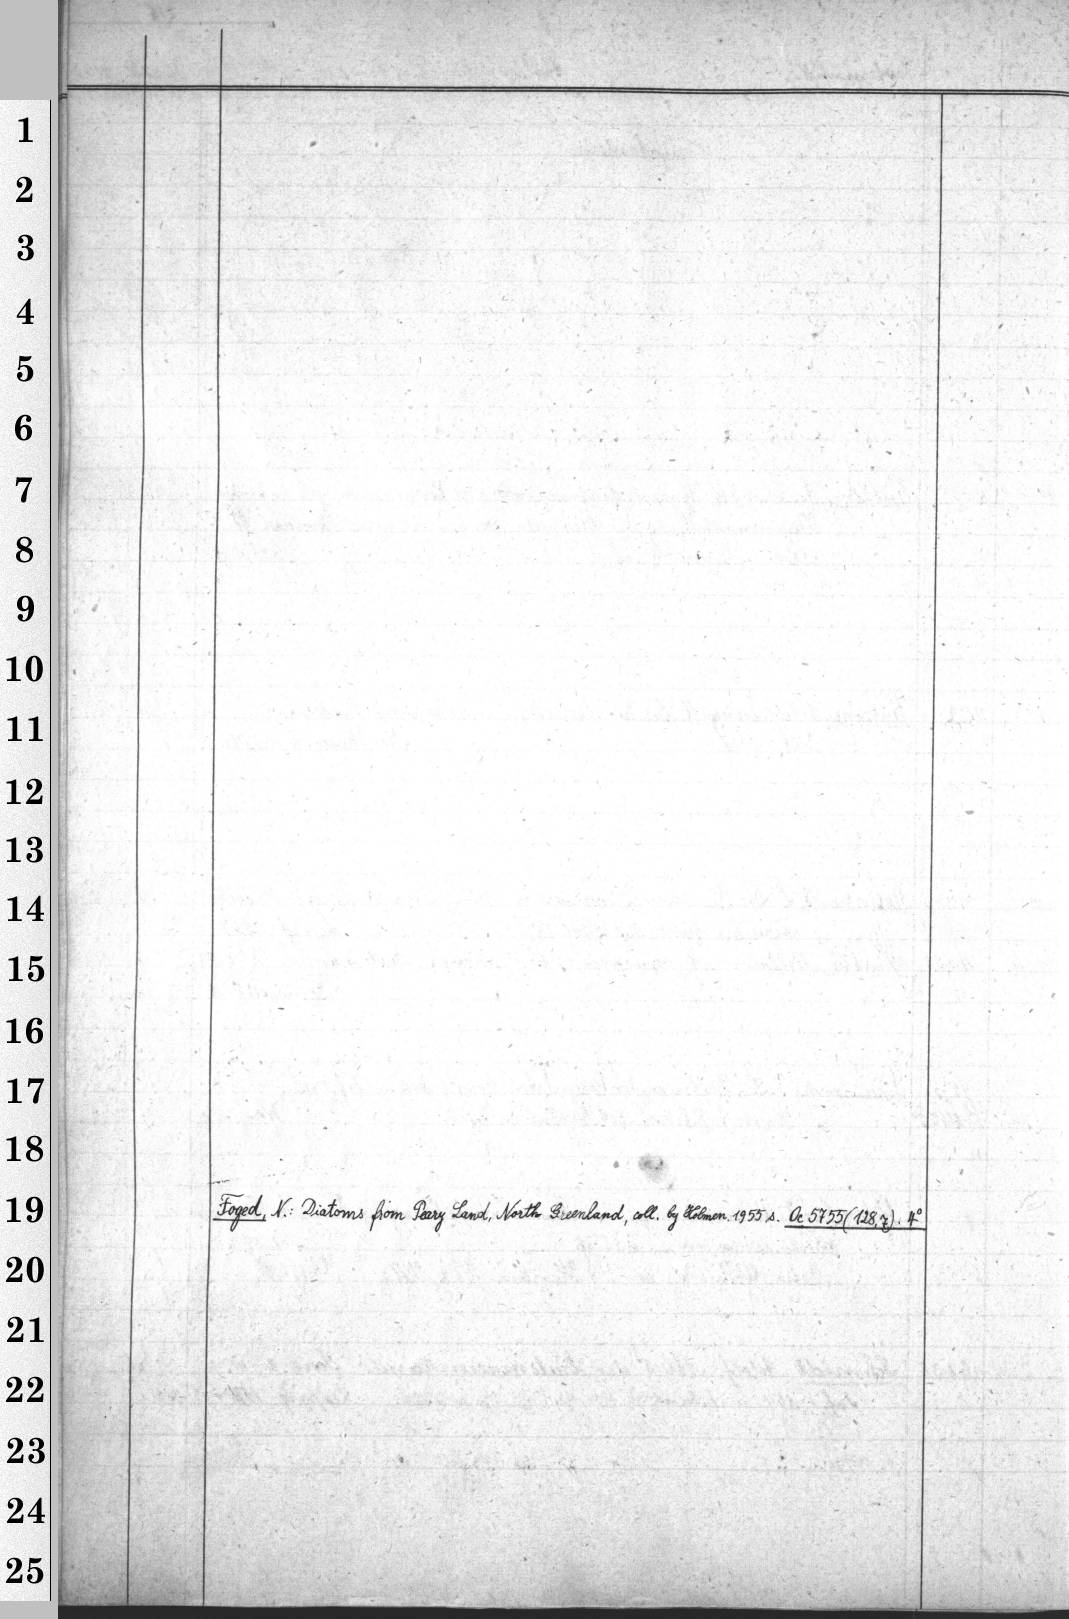 1
2
3
4
5
6
7
8
9
10
11
12
13
14
15
16
17
18
19
Foged, N.: Diatoms from Peary Land, North Greenland, coll. by Holmen. 1955 s. Oc 5755 (128,7). 4°
20
21
22
23
24
25